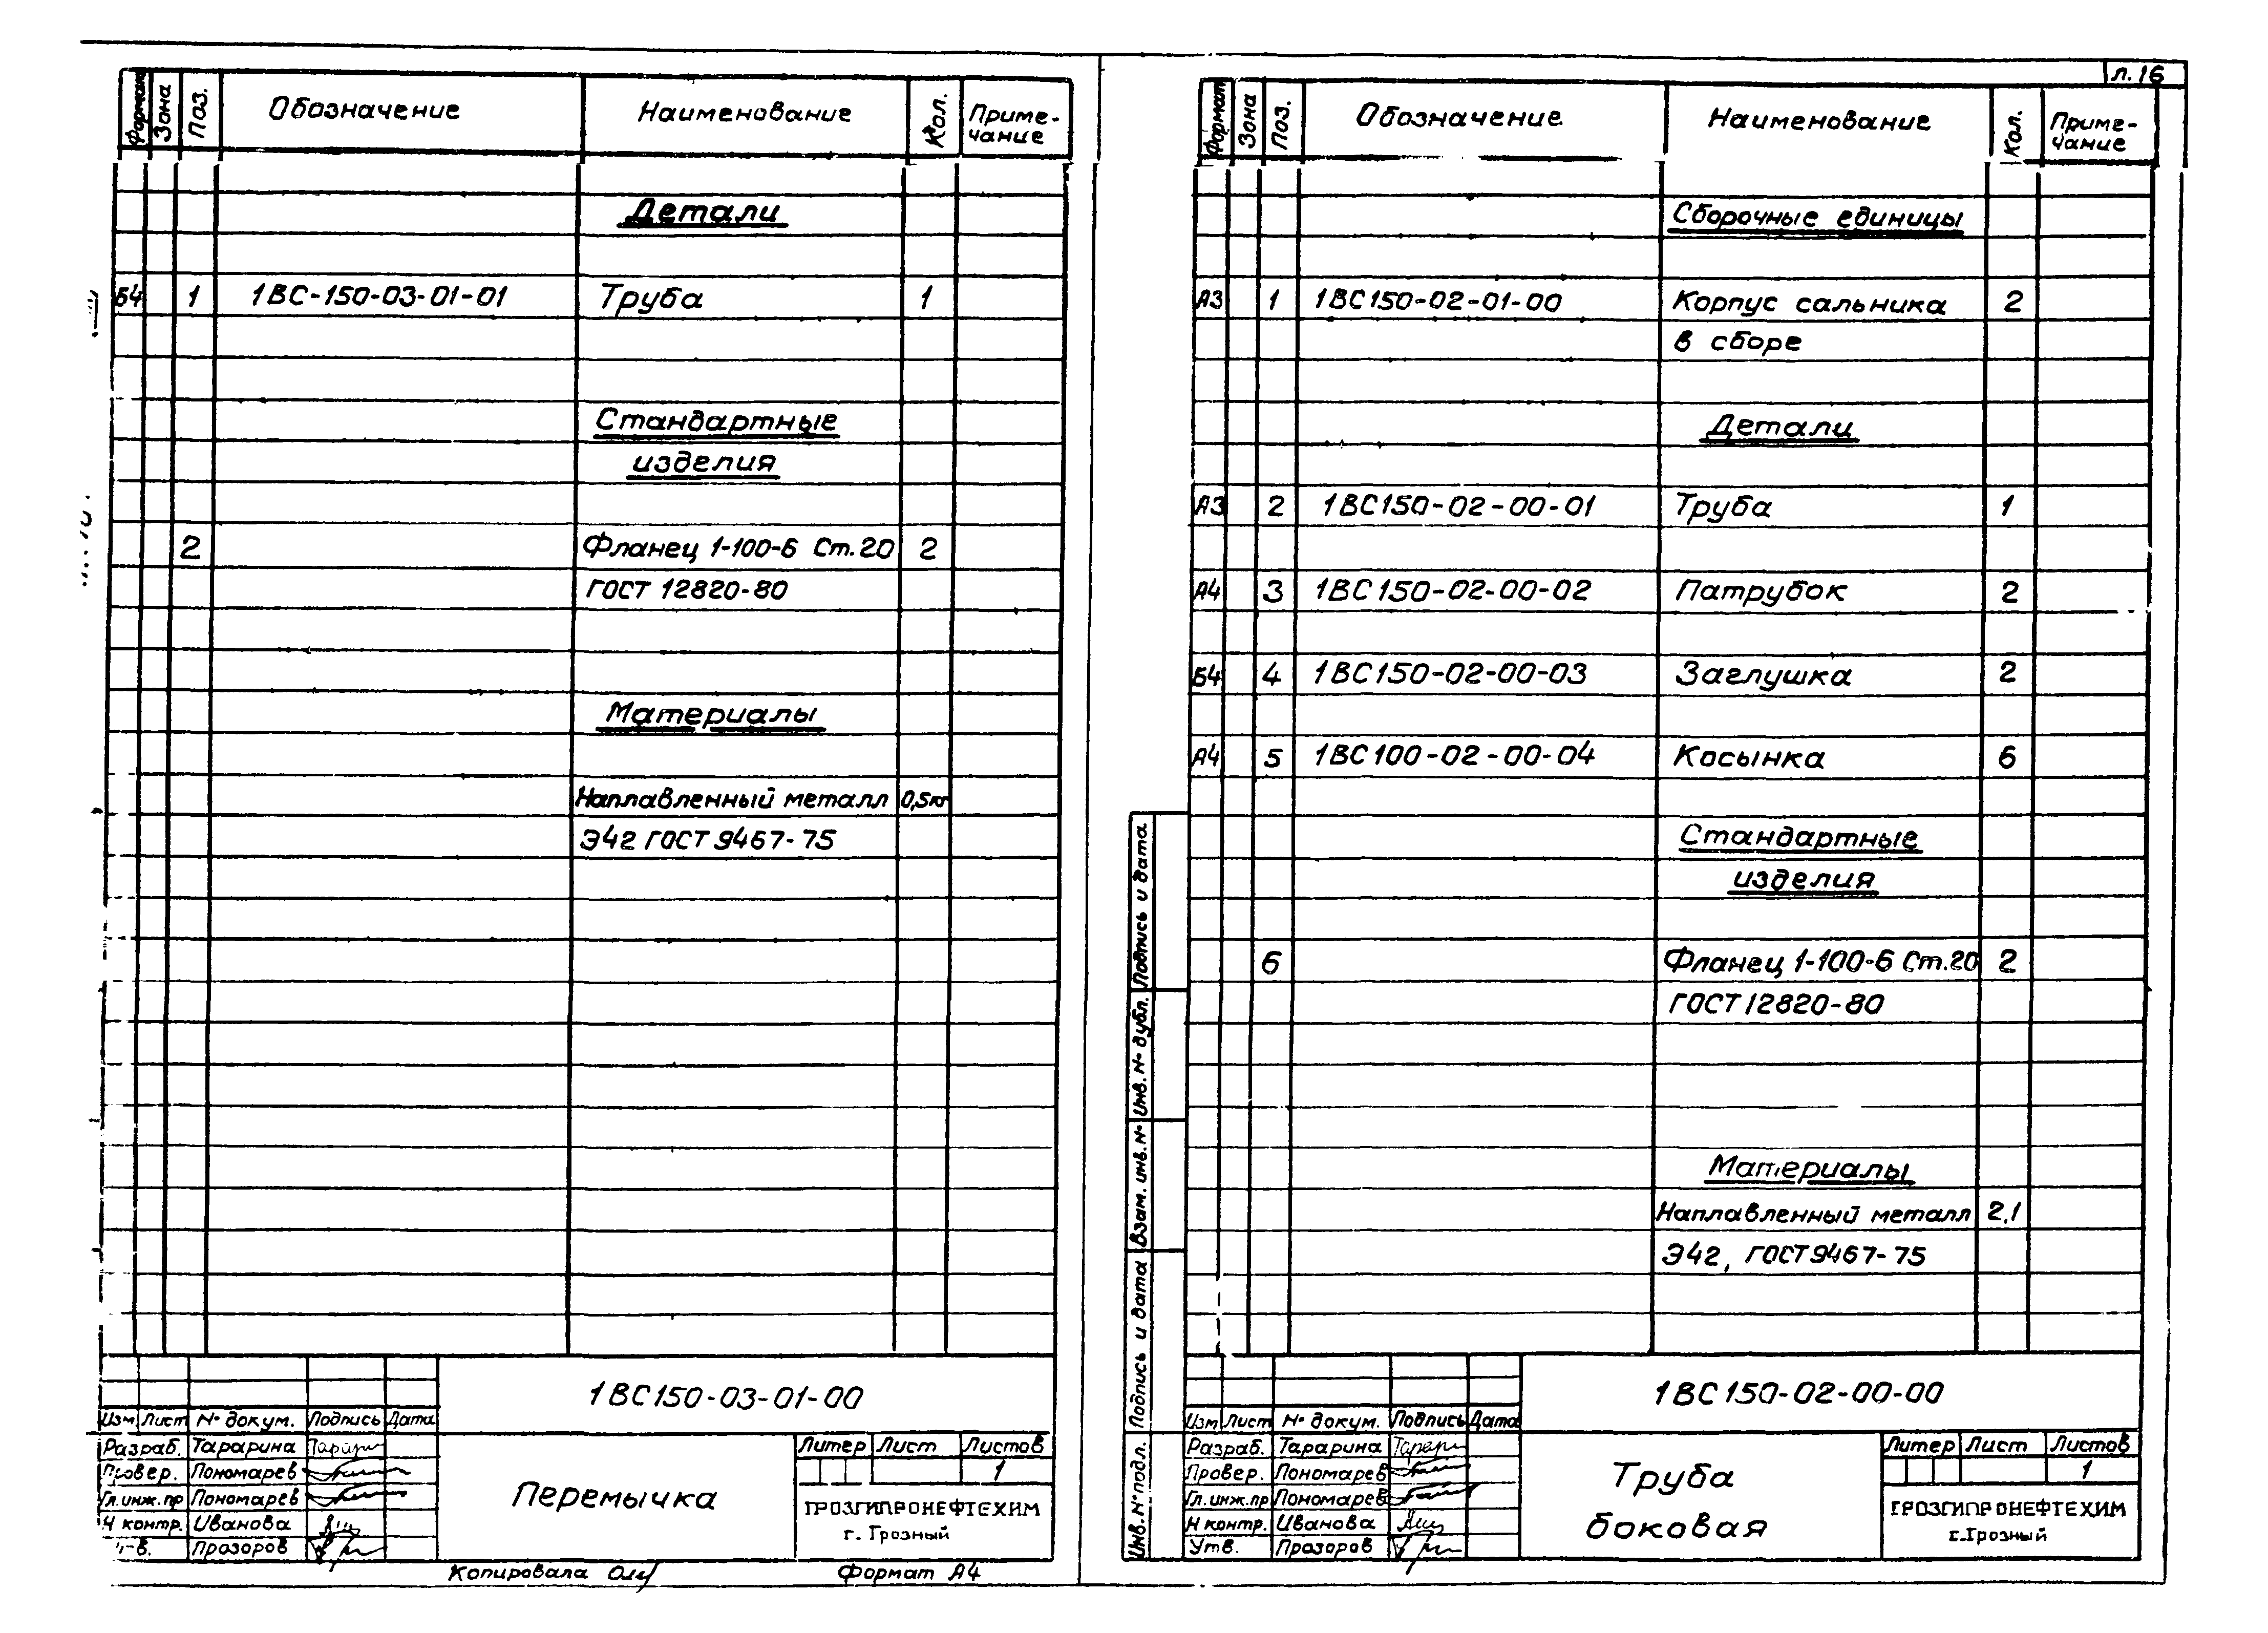 Формат Зона Поз. Обозначение Наименование Кол. Приме-
чание
Детали
Б4 1 1ВС-150-03-01-01 Труба 1
Стандартные
изделия
2 Фланец 1-100-6 Ст.20 2
ГОСТ 12820-80
Материалы
Наплавленный металл 0,5кг
Э42 ГОСТ 9467-75
1ВС150-03-01-00
Изм Лист № докум. Подпись Дата
Разраб. Тарарина
Провер. Пономарев
Гл.инж.пр Пономарев
Н контр. Иванова
Прозоров
Перемычка
Литер Лист Листов
1
ГРОЗГИПРОНЕФТЕХИМ
г. Грозный
Копировала
Формат А4
л.16
Формат Зона Поз. Обозначение Наименование Кол. Приме-
чание
Сборочные единицы
А3 1 1ВС150-02-01-00 Корпус сальника 2
в сборе
Детали
А3 2 1ВС150-02-00-01 Труба 1
А4 3 1ВС150-02-00-02 Патрубок 2
Б4 4 1ВС150-02-00-03 Заглушка 2
А4 5 1ВС100-02-00-04 Косынка 6
Стандартные
изделия
6 Фланец 1-100-6 Ст.20 2
ГОСТ 12820-80
Материалы
Наплавленный металл 2,1
Э42, ГОСТ 9467-75
Подпись и дата
Инв. № дубл.
Взам. инв. №
Подпись и дата
Инв. № подл.
1ВС150-02-00-00
Изм Лист № докум. Подпись Дата
Разраб. Тарарина
Провер. Пономарев
Гл.инж.пр Пономарев
Н контр. Иванова
Утв. Прозоров
Труба
боковая
Литер Лист Листов
1
ГРОЗГИПРОНЕФТЕХИМ
г.Грозный